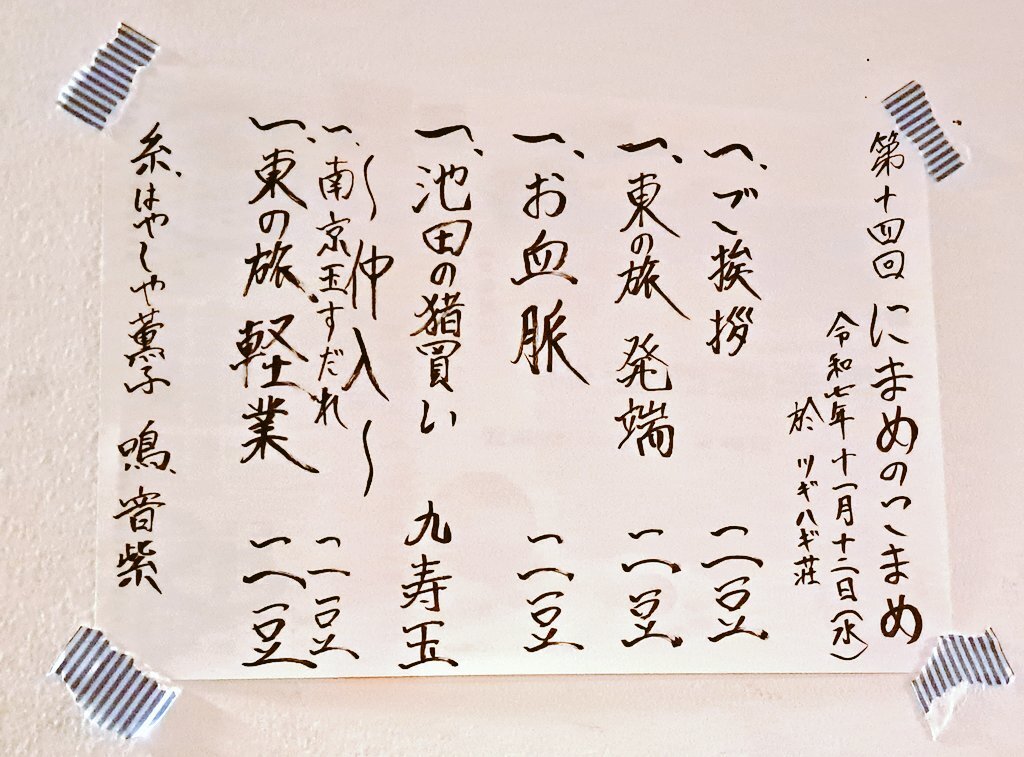 第十四回 にまめのこまめ
令和七年十一月十二日(水)
於 ツギハギ荘
一、ご挨拶 二豆
一、東の旅 発端 二豆
一、お血脈 二豆
一、池田の猪買い 九寿玉
〜仲入〜
一、南京玉すだれ 二豆
一、東の旅 軽業 二豆
糸、はやしや薫子 鳴、音紫